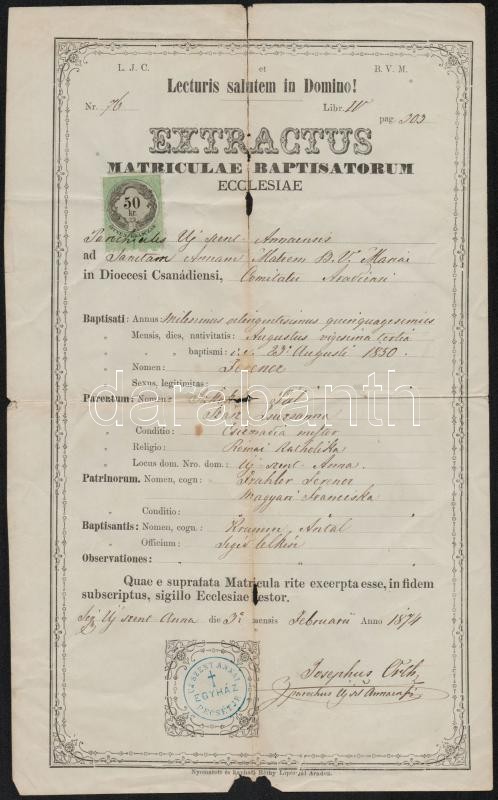 L. J. C. et B. V. M.
Lecturis salutem in Domino!
Nr. 76 Libr. IV
pag. 303
EXTRACTUS
MATRICULAE BAPTISATORUM
ECCLESIAE
50
kr.
Parochialis Uj szent Annaensis
ad Sanctam Annam Matrem B. V. Mariae
in Dioecesi Csanádiensi, Comitatu Aradiensi
Baptisati: Annus Milesimus octingentesimus quinquagesimus
„ Mensis, dies, nativitatis: Augustus vigesima tertia
„ „ baptismi: i.e. 23a Augusti 1850
„ Nomen: Ferencz
„ Sexus, legitimitas:
Parentum: Nomen: Pál
Zsuzsanna
„ Conditio: Csizmadia mester
„ Religio: Római Katholika
„ Locus dom. Nro. dom.: Uj szent Anna.
Patrinorum. Nomen, cogn.: Ferencz
Magyari Franciska
„ Conditio: „
Baptisantis: Nomen, cogn.: Antal
„ Officium: Segéd lelkész
Observationes: „
darabanth
Quae e suprafata Matricula rite excerpta esse, in fidem
subscriptus, sigillo Ecclesiae testor.
Uj szent Anna die 3a mensis Februarii Anno 1874
SZENT ANNAI
EGYHÁZ
PECSÉTJE
Josephus Orth
parochus Uj szt Annaensis
Nyomatott és kapható Réthy Lipótnál Aradon.